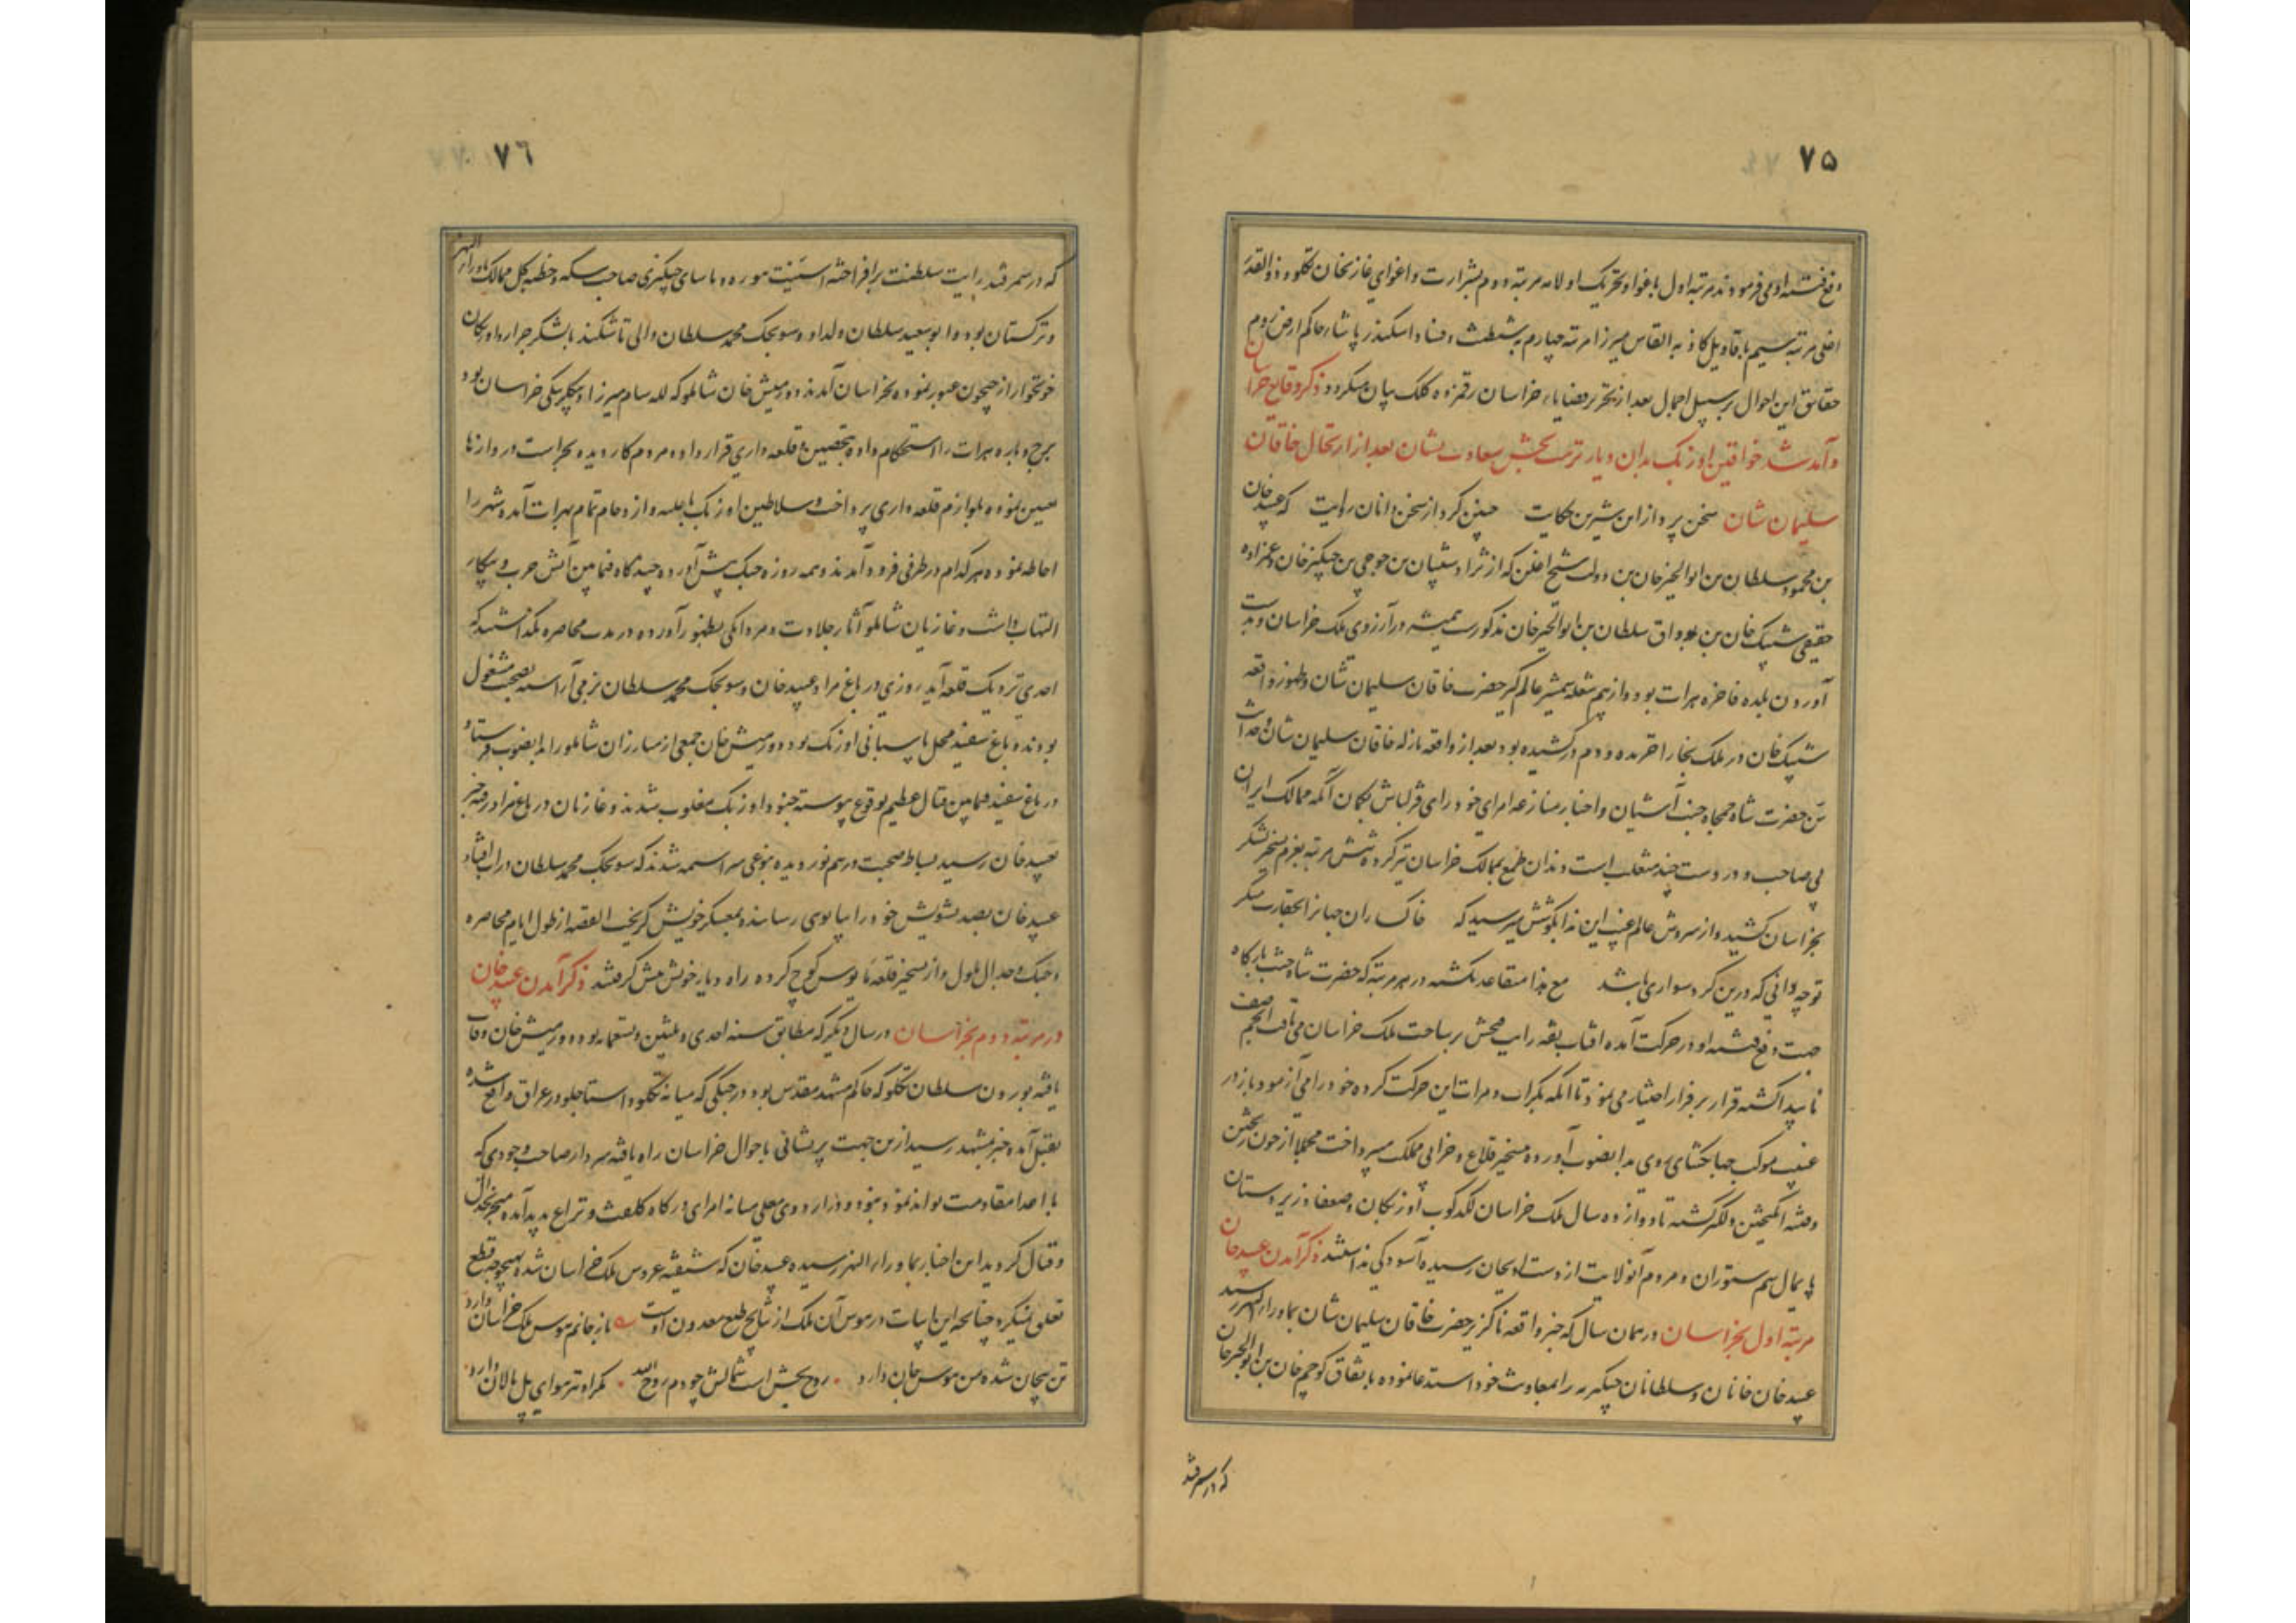 ۷۵
دفع فتنه او می‌فرمودند مرتبه اول باغوا و تحریک اولامه مرتبه دوم بشرارت و اغوای غازیخان تکلو و ذوالقدر
اغلی مرتبه سیم باقاویل کاذبه القاس میرزا مرتبه چهارم بشیطنت و فساد اسکندر پاشا حاکم ارض روم
حقائق این احوال بر سبیل اجمال بعد از تحریر قضایاء خراسان رقمزده کلک بیان میگردد ذکر وقایع خراسان
و آمد شد خواقین اوزبک بدان دیار نزهت بخش سعادت نشان بعد از ارتحال خاقان
سلیمان شان سخن پرداز این شیرین حکایت چنین کرد از سخن دانان روایت که عبید خان
بن محمود سلطان بن ابوالخیر خان بن دولت شیخ اغلن که از نژاد شیبان بن جوجی بن چنگیز خان و عمزاده
حقیقی شیبک خان بن بوداق سلطان بن ابوالخیر خان مذکورست همیشه در آرزوی ملک خراسان و بدست
آوردن بلده فاخره هرات بود و از بیم شعله شمشیر عالم گیر حضرت خاقان سلیمان شان و ظهور واقعه
شیبک خان در ملک بخارا خزیده و دم درکشیده بود بعد از واقعه نازله خاقان سلیمان شان و حداثت
سن حضرت شاه جمجاه جنت آشیان و اخبار منازعه امرای خودرای قزلباش بگمان آنکه ممالک ایران
بی صاحب و در دست چند متغلب است دندان طمع بممالک خراسان تیز کرده شش مرتبه بعزم تسخیر لشکر
بخراسان کشید و از سروش عالم غیب این ندا بگوشش میرسید که خاکساران جهانرا بحقارت منگر
توچه دانی که درین گرد سواری باشد مع هذا متقاعد نگشته در هر مرتبه که حضرت شاه جنت بارگاه
جهت دفع فتنه او در حرکت آمده آفتاب رایت بر ساحت ملک خراسان می‌تافت
ناپیدا گشته قرار بر فرار اختیار می‌نمود تا آنکه بکرات و مرات این حرکت کرده خود را می‌آزمود و باز در
غیبت موکب جهانگشای روی بدانصوب آورده بتسخیر قلاع و خرابی مملکت میپرداخت مجملا از خون ریختن
و فتنه انگیختن دلگیر نگشته تا دوازده سال ملک خراسان لگدکوب اوزبکان و ضعفا و زیردستان
پایمال سم ستوران و مردم آنولایت از دست او بجان رسیده آسودگی نداشتند ذکر آمدن عبید خان
مرتبه اول بخراسان در همان سال که خبر واقعه ناگزیر حضرت خاقان سلیمان شان بماوراءالنهر رسید
عبید خان خانان و سلطانان چنگیزیه را بمعاونت خود استدعا نموده باتفاق کوچم خان بن ابوالخیر خان
که در سمرقند
۷۶
که در سمرقند رایت سلطنت برافراخته بآئین توره و یاسای چنگیزی صاحب سکه و خطبه کل ممالک ماوراءالنهر
و ترکستان بود و ابوسعید سلطان ولد او و سونجک محمد سلطان والی تاشکند با لشکر جرار و اوزبکان
خونخوار از جیحون عبور نموده بخراسان آمدند دورمیش خان شاملو که لله سام میرزا و بیگلربیگی خراسان بود
برج و باره هرات را استحکام داده بتحصین و قلعه داری قرار داده مردم کاردیده بحراست دروازها
تعیین نموده بلوازم قلعه داری پرداخت و سلاطین اوزبک با جلسه و ازدحام تمام بهرات آمده شهر را
احاطه نموده هر کدام در طرفی فرود آمدند و همه روزه جنگ پیش آورده چندگاه فیمابین آتش حرب و پیکار
التهاب داشت و غازیان شاملو آثار جلادت و مردانگی بظهور آورده در مدت محاصره نگذاشتند که
احدی نزدیک قلعه آید روزی در باغ مراد عبید خان و سونجک محمد سلطان بزمی آراسته بصحبت مشغول
بودند و باغ سفید محل پاسبانی اوزبک بود دورمیش خان جمعی از مبارزان شاملو را بدانصوب فرستاد
در باغ سفید فیمابین قتال عظیم بوقوع پیوسته جنود اوزبک مغلوب شدند و غازیان در باغ مراد رفته خبر
بعبید خان رسید بساط صحبت درهم نوردیده بنوعی سراسیمه شدند که سونجک محمد سلطان در آب افتاد
عبید خان بصد تشویش خود را بپابوی رسانده بمعسکر خویش گریخت القصه از طول ایام محاصره
و جنگ و جدال ملول و از تسخیر قلعه مایوس کوچ کرده راه دیار خویش پیش گرفتند ذکر آمدن عبید خان
در مرتبه دوم بخراسان در سال دیگر که مطابق سنه احدی و ثلثین و تسعمائه بود دورمیش خان وفات
یافته بورون سلطان تکلو که حاکم مشهد مقدس بود در جنگی که میانه تکلو و استاجلو در عراق واقع شده
بقتل آمده خبر بمشهد رسید ازین جهت پریشانی باحوال خراسان راه یافته سردار صاحب وجودی که
با اعدا مقاومت تواند نمود نبود و در اردوی معلی میانه امرای درگاه کلفت و نزاع پدید آمده منجر بجدال
و قتال گردید این اخبار بماوراءالنهر رسیده عبید خان که شیفته عروس ملک خراسان شده بهیچوجه قطع
تعلق نمیکرد چنانچه این ابیات در هوس آن ملک از نتایج طبع معدون اوست باز جانم هوس ملک خراسان دارد
تن بیجان شده من هوس جان دارد روح بخش است شمالش چو دم روح الله مگر او نیز هوای پل مالان دارد